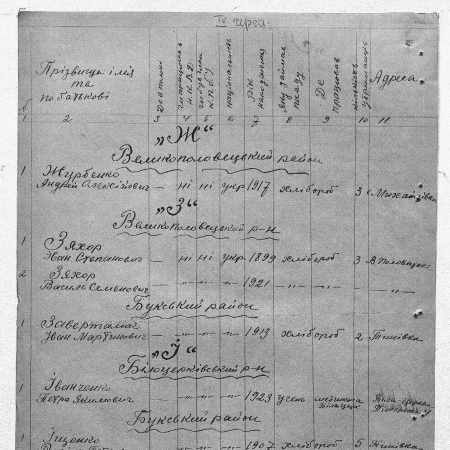 IV черга.
Прізвище імя
та
по батькові
Де в полоні
Національність
Рік народження
Яку займав посаду
Де працював
Адреса
1 2 3 4 5 6 7 8 9 10 11
„Ж“
Великополовецький район
1 Журбенко
Андрій Олексійович — ні ні укр 1917 хлібороб 3 с Михайлівка
„З“
Великополовецький р-н
1 Зяхор
Іван Степанович — ні ні укр. 1899 хлібороб 3 В Половецьке
2 Зяхор
Василь Семенович — „ „ „ 1921 — „ — „ — — „ —
Букський район
1 Завертайло
Іван Мартинович — „ „ „ 1913 хлібороб 2 Тинівка
„І“
Білоцерківський р-н
1 Іванченко
Петро Якимович — „ „ „ 1923 учень Біла Церква
Букський район
1 Іщенко
1907 хлібороб 5 Тинівка